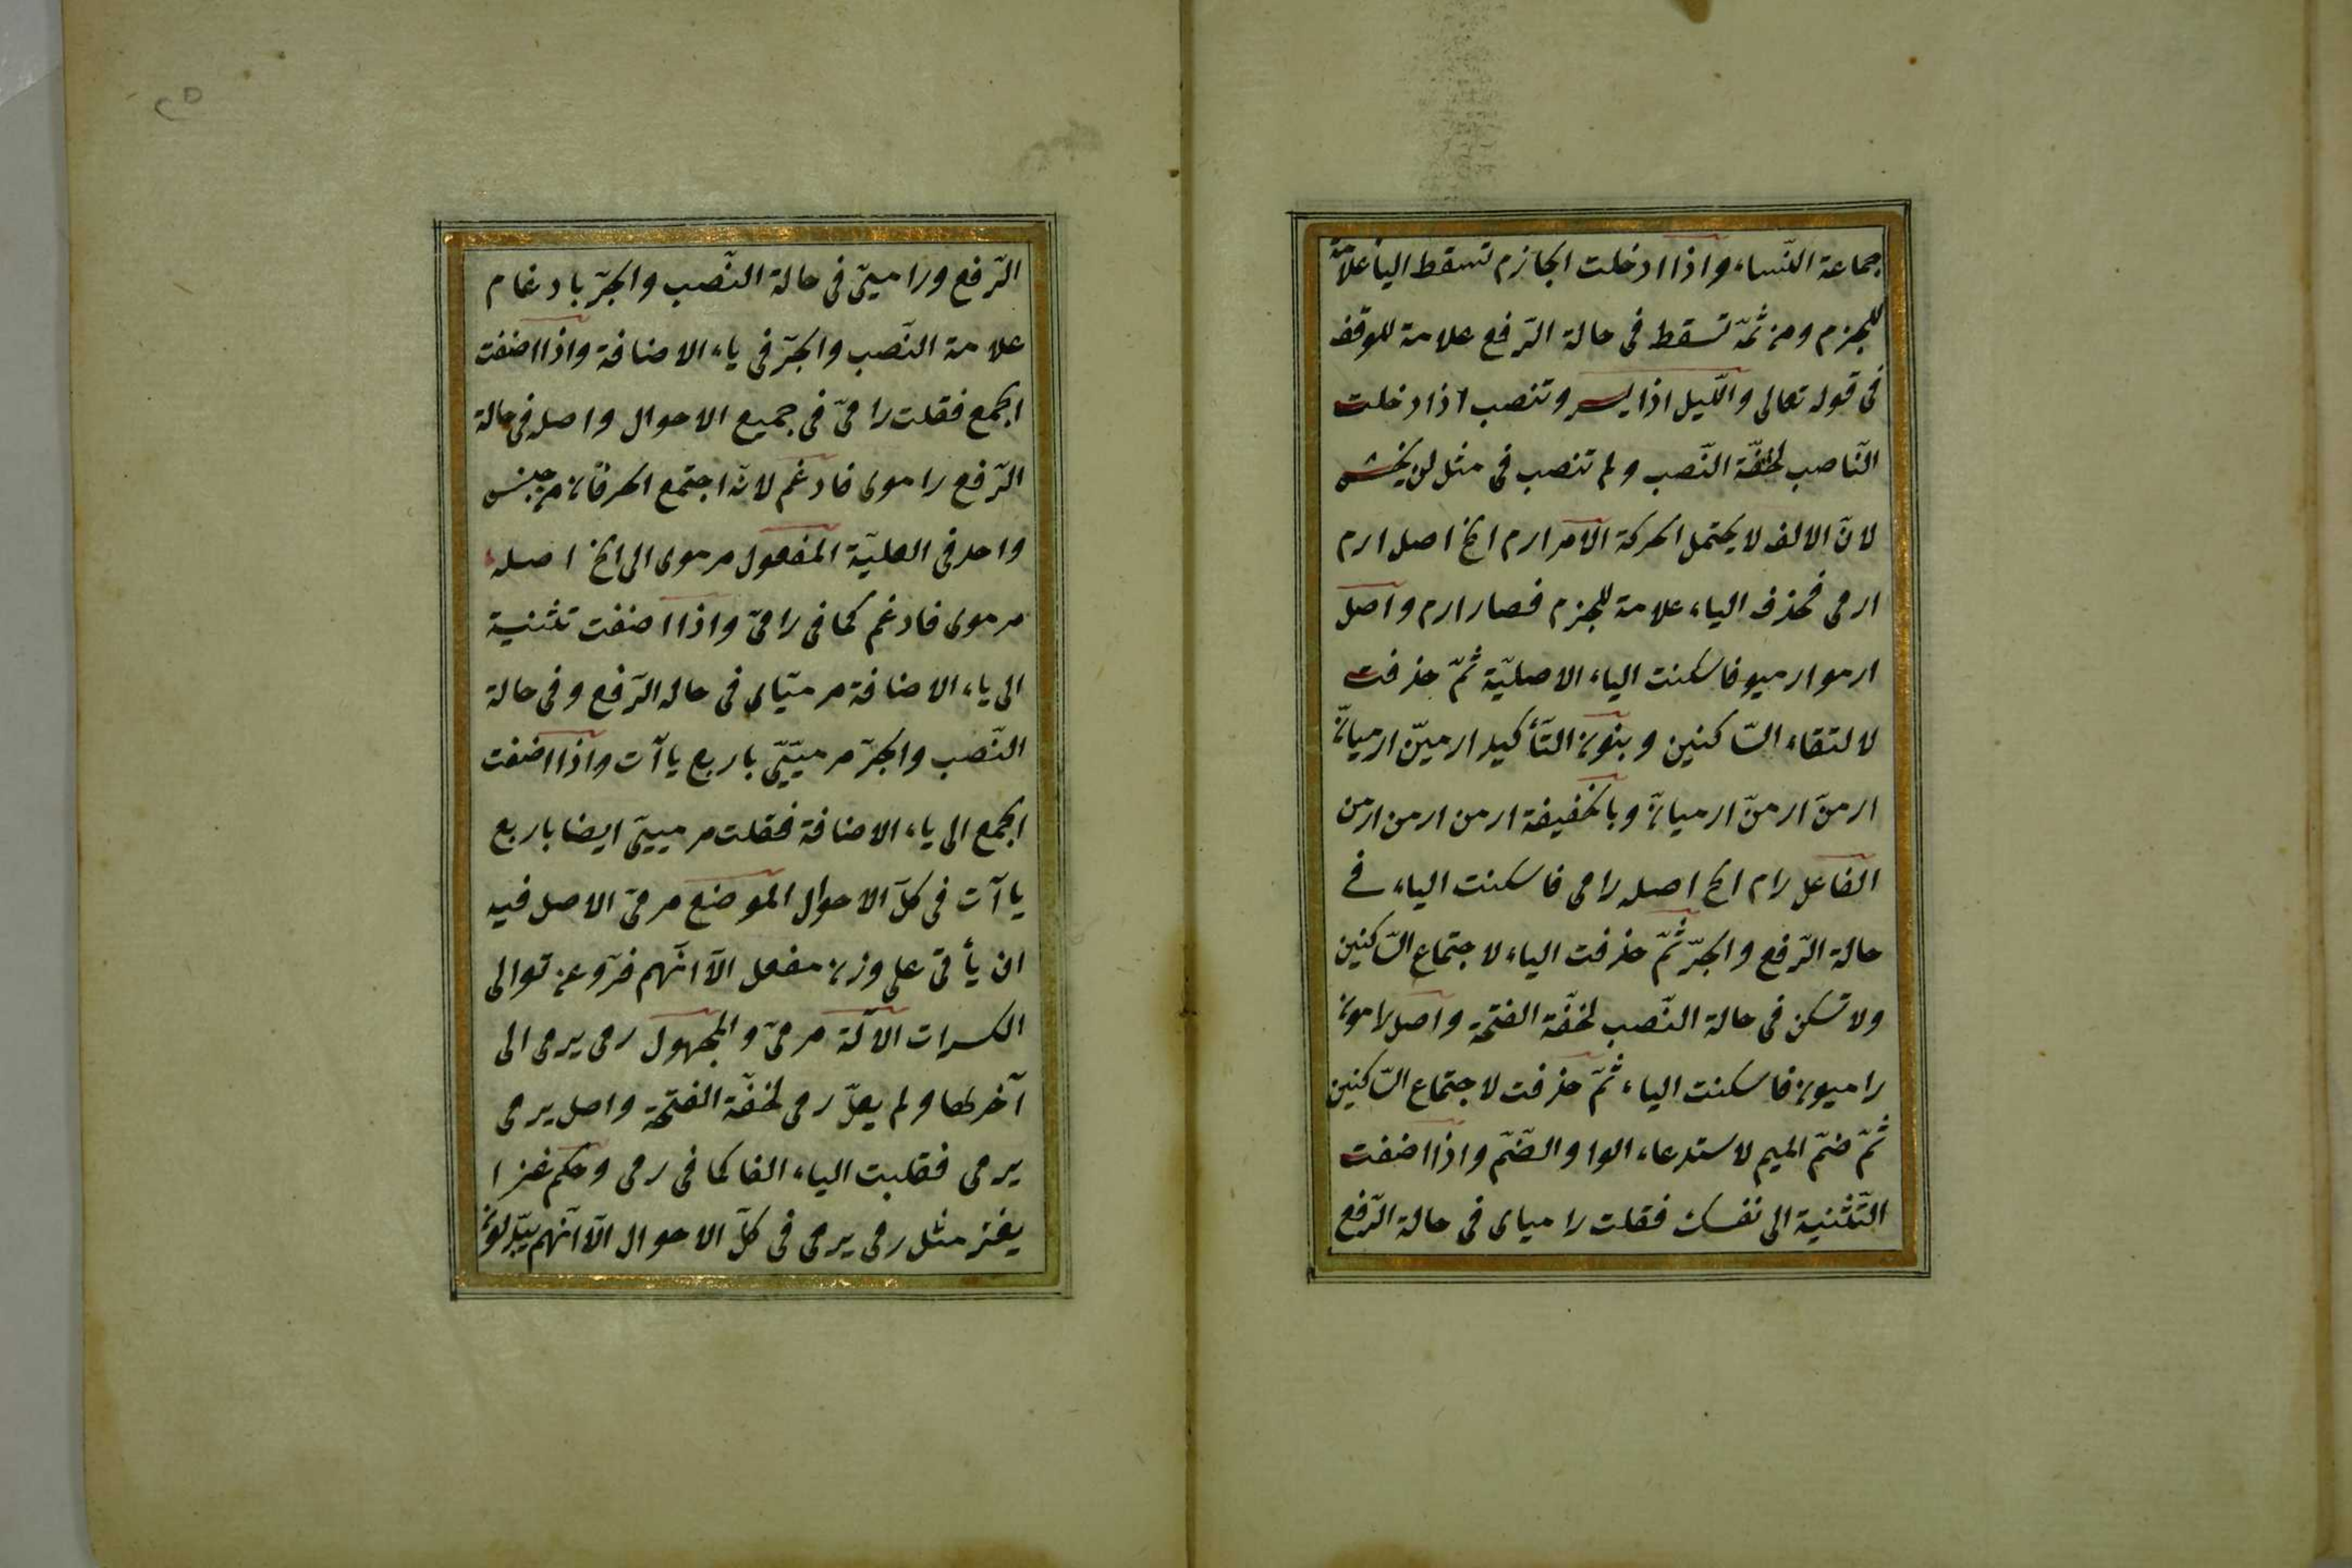 جماعة النّساء واذا ادخلت الجازم تسقط الياء علامة
للجزم ومن ثمّة تسقط فى حالة الرّفع علامة للوقف
فى قوله تعالى واللّيل اذا يسر وتنصب اذا دخلت
النّاصب لخفّة النّصب ولم تنصب فى مثل لن يخشى
لانّ الالف لا يحتمل الحركة الامر ارم الخ اصل ارم
ارمى فحذف الياء علامة للجزم فصار ارم واصل
ارموا ارميو فاسكنت الياء الاصليّة ثمّ حذفت
لالتقاء السّاكنين وبنون التّأكيد ارمينّ ارميانّ
ارمنّ ارمنّ ارميانّ وبالخفيفة ارمن ارمن ارمن
الفاعل رام الخ اصله رامى فاسكنت الياء فى
حالة الرّفع والجرّ ثمّ حذفت الياء لاجتماع السّاكنين
ولا تسكن فى حالة النّصب لخفّة الفتحة واصل رامون
راميون فاسكنت الياء ثمّ حذفت لاجتماع السّاكنين
ثمّ ضمّ الميم لاستدعاء الواو الضّمّ واذا اضفت
التّثنية الى نفسك فقلت رامياى فى حالة الرّفع
الرّفع وراميىّ فى حالة النّصب والجرّ بادغام
علامة النّصب والجرّ فى ياء الاضافة واذا اضفت
الجمع فقلت رامىّ فى جميع الاحوال واصله فى حالة
الرّفع راموى فادغم لانّه اجتمع الحرفان من جنس
واحد فى العليّة المفعول مرموى الى الخ اصله
مرموى فادغم كما فى رامىّ واذا اضفت تثنية
الى ياء الاضافة مرميّاى فى حالة الرّفع وفى حالة
النّصب والجرّ مرميّىّ باربع ياآت واذا اضفت
الجمع الى ياء الاضافة فقلت مرمييّى ايضا باربع
ياآت فى كلّ الاحوال الموضع مرمىّ الاصل فيه
ان يأتى على وزن مفعل الّا انّهم فرّو عن توالى
الكسرات الآلة مرمىّ والمجهول رمى يرمى الى
آخرهما ولم يعلّ رمى لخفّة الفتحة واصل يرمى
يرمى فقلبت الياء الفا كما فى رمى وحكم غزا
يغز مثل رمى يرمى فى كلّ الاحوال الّا انّهم يبدّلون
٢٥